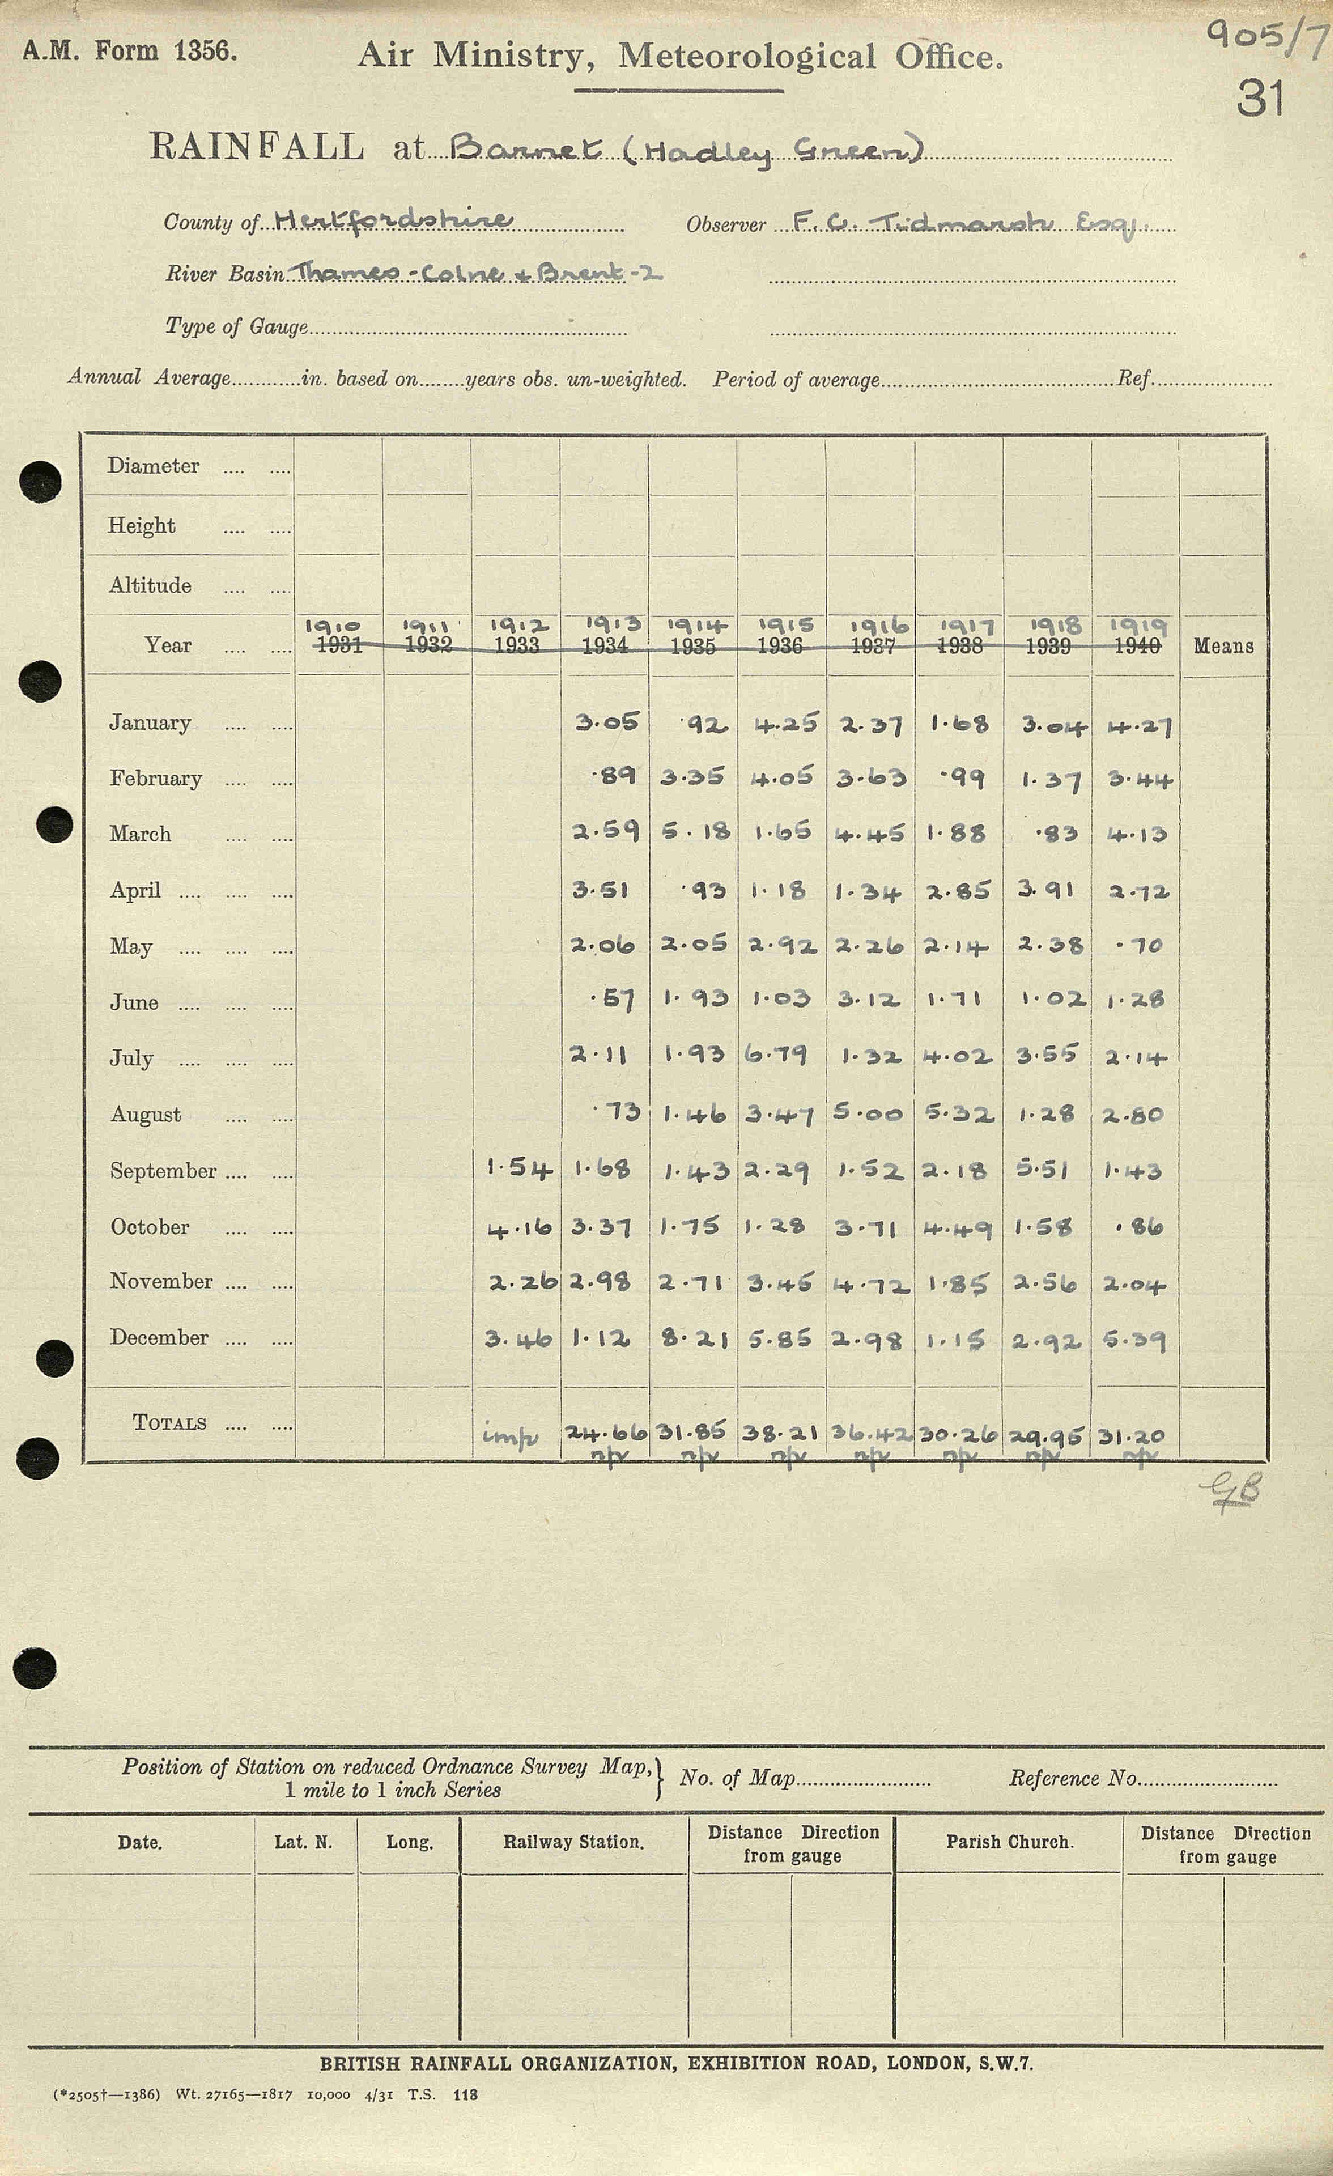 905/7
A.M. Form 1356. Air Ministry, Meteorological Office.
31
RAINFALL at Barnet (Hadley Green)
County of Hertfordshire Observer F. C. Tidmarsh Esq.
River Basin Thames - Colne + Brent - 2
Type of Gauge
Annual Average in. based on years obs. un-weighted. Period of average Ref.
Diameter
Height
Altitude
1910 1911 1912 1913 1914 1915 1916 1917 1918 1919
Year 1931 1932 1933 1934 1935 1936 1937 1938 1939 1940 Means
January 3.05 .92 4.25 2.37 1.68 3.04 4.27
February .89 3.35 4.05 3.63 .99 1.37 3.44
March 2.59 5.18 1.65 4.45 1.88 .83 4.13
April 3.51 .93 1.18 1.34 2.85 3.91 2.72
May 2.06 2.05 2.92 2.26 2.14 2.38 .70
June .57 1.93 1.03 3.12 1.71 1.02 1.28
July 2.11 1.93 6.79 1.32 4.02 3.55 2.14
August .73 1.46 3.47 5.00 5.32 1.28 2.80
September 1.54 1.68 1.43 2.29 1.52 2.18 5.51 1.43
October 4.16 3.37 1.75 1.28 3.71 4.49 1.58 .86
November 2.26 2.98 2.71 3.45 4.72 1.85 2.56 2.04
December 3.46 1.12 8.21 5.85 2.98 1.15 2.92 5.39
TOTALS imp 24.66 31.85 38.21 36.42 30.26 29.95 31.20
np np np np np np np
GB
Position of Station on reduced Ordnance Survey Map,
1 mile to 1 inch Series } No. of Map Reference No.
Date. Lat. N. Long. Railway Station. Distance Direction from gauge Parish Church. Distance Direction from gauge
BRITISH RAINFALL ORGANIZATION, EXHIBITION ROAD, LONDON, S.W.7.
(*2505†—1386) Wt. 27165—1817 10,000 4/31 T.S. 118